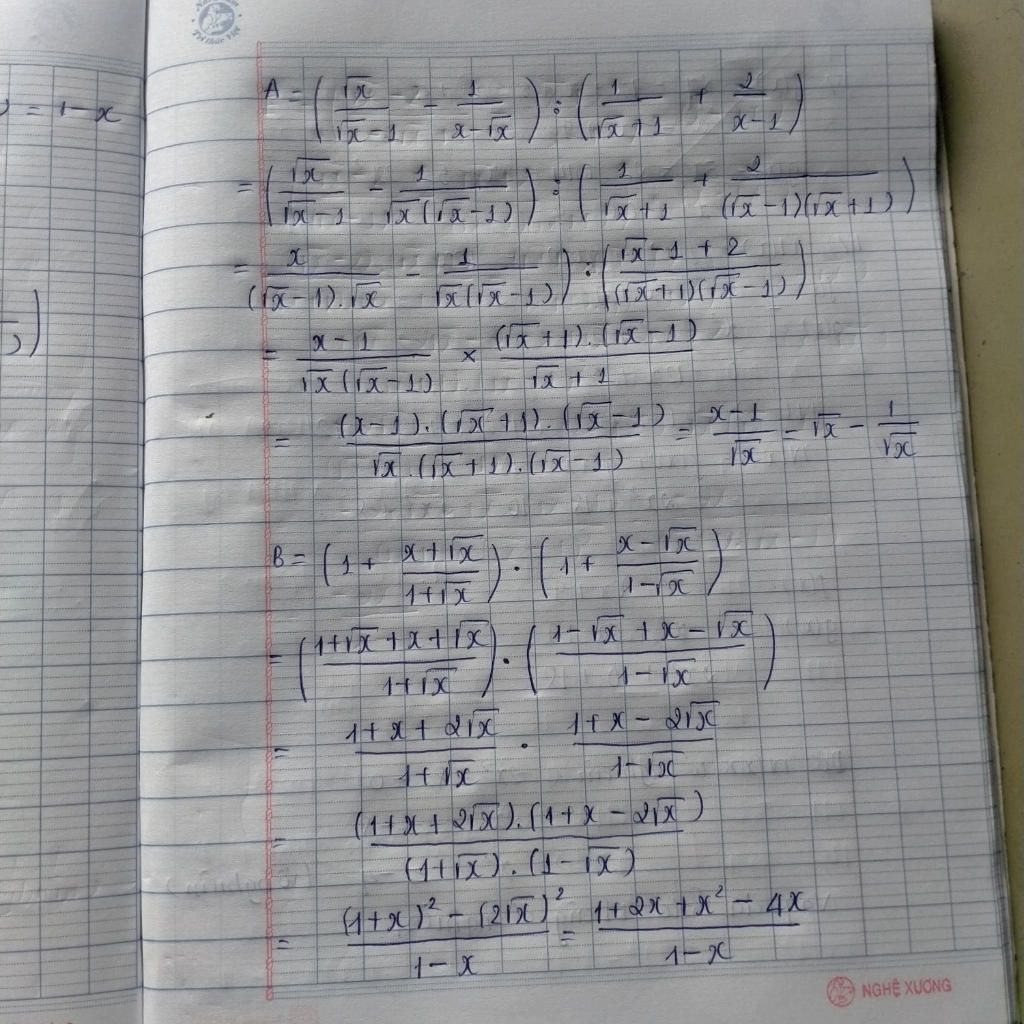 = 1 - x
A = (√x/(√x - 1) - 1/(x - √x)) : (1/(√x + 1) + 2/(x - 1))
= (√x/(√x - 1) - 1/(√x(√x - 1))) : (1/(√x + 1) + 2/((√x - 1)(√x + 1)))
= x/((√x - 1).√x) - 1/(√x(√x - 1))) : ((√x - 1 + 2)/((√x + 1)(√x - 1)))
= (x - 1)/(√x(√x - 1)) × ((√x + 1).(√x - 1))/(√x + 1)
= ((x - 1).(√x + 1).(√x - 1))/(√x.(√x + 1).(√x - 1)) = (x - 1)/√x = √x - 1/√x
B = (1 + (x + √x)/(1 + √x)) . (1 + (x - √x)/(1 - √x))
= ((1 + √x + x + √x)/(1 + √x)) . ((1 - √x + x - √x)/(1 - √x))
= (1 + x + 2√x)/(1 + √x) . (1 + x - 2√x)/(1 - √x)
= ((1 + x + 2√x).(1 + x - 2√x))/((1 + √x).(1 - √x))
= ((1 + x)² - (2√x)²)/(1 - x) = (1 + 2x + x² - 4x)/(1 - x)
NGHỆ XƯƠNG